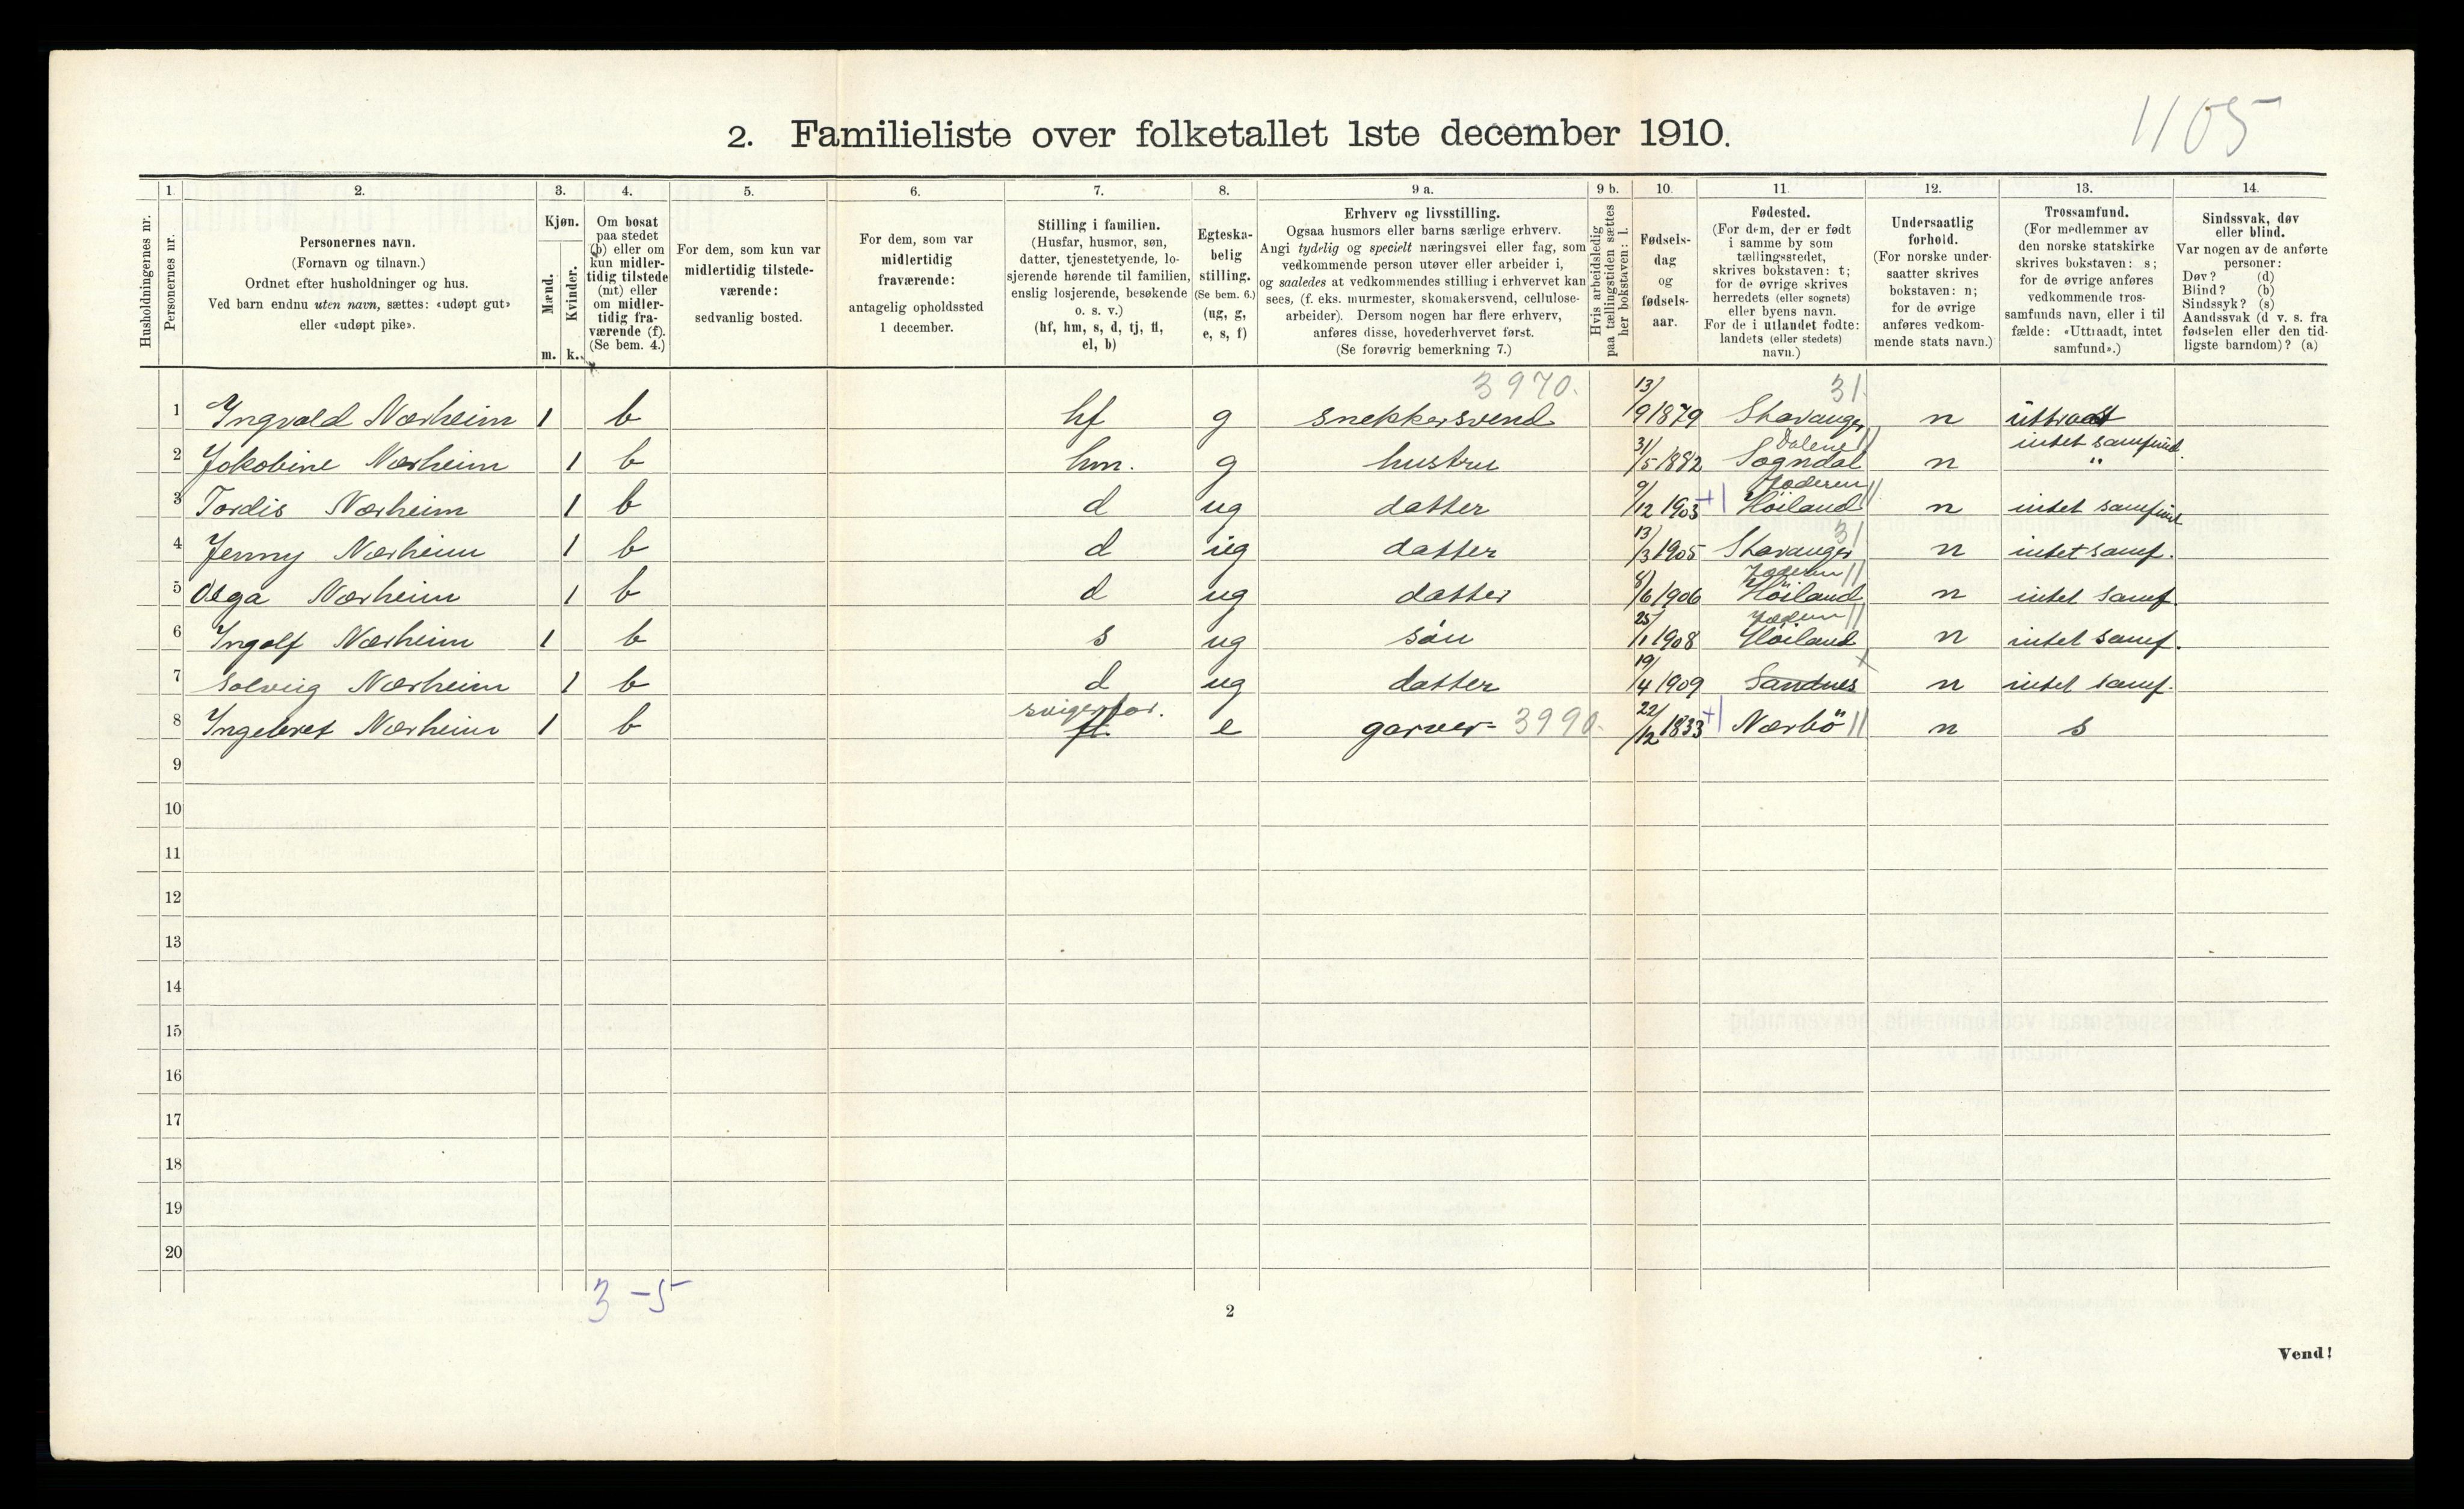 1105
2. Familieliste over folketallet 1ste december 1910.
Husholdningernes nr.
1.
Personernes nr.
2.
Personernes navn.
(Fornavn og tilnavn.)
Ordnet efter husholdninger og hus.
Ved barn endnu uten navn, sættes: «udøpt gut»
eller «udøpt pike».
3.
Kjøn.
Mænd.
Kvinder.
m. k.
4.
Om bosat
paa stedet
(b) eller om
kun midler-
tidig tilstede
(mt) eller
om midler-
tidig fra-
værende (f).
(Se bem. 4.)
5.
For dem, som kun var
midlertidig tilstede-
værende:
sedvanlig bosted.
6.
For dem, som var
midlertidig
fraværende:
antagelig opholdssted
1 december.
7.
Stilling i familien.
(Husfar, husmor, søn,
datter, tjenestetyende, lo-
sjerende hørende til familien,
enslig losjerende, besøkende
o. s. v.)
(hf, hm, s, d, tj, fl,
el, b)
8.
Egteska-
belig
stilling.
(Se bem. 6.)
(ug, g,
e, s, f)
9 a.
Erhverv og livsstilling.
Ogsaa husmors eller barns særlige erhverv.
Angi tydelig og specielt næringsvei eller fag, som
vedkommende person utøver eller arbeider i,
og saaledes at vedkommendes stilling i erhvervet kan
sees, (f. eks. murmester, skomakersvend, cellulose-
arbeider). Dersom nogen har flere erhverv,
anføres disse, hovederhvervet først.
(Se forøvrig bemerkning 7.)
9 b.
Hvis arbeidsledig
paa tællingstiden sættes
her bokstaven: l.
10.
Fødsels-
dag
og
fødsels-
aar.
11.
Fødested.
(For dem, der er født
i samme by som
tællingsstedet,
skrives bokstaven: t;
for de øvrige skrives
herredets (eller sognets)
eller byens navn.
For de i utlandet fødte:
landets (eller stedets)
navn.)
12.
Undersaatlig
forhold.
(For norske under-
saatter skrives
bokstaven: n;
for de øvrige
anføres vedkom-
mende stats navn.)
13.
Trossamfund.
(For medlemmer av
den norske statskirke
skrives bokstaven: s;
for de øvrige anføres
vedkommende tros-
samfunds navn, eller i til
fælde: «Uttraadt, intet
samfund».)
14.
Sindssvak, døv
eller blind.
Var nogen av de anførte
personer:
Døv? (d)
Blind? (b)
Sindssyk? (s)
Aandssvak (d v. s. fra
fødselen eller den tid-
ligste barndom)? (a)
3970. 31.
1 Ingvald Nærheim 1 b hf g snekkersvend 13/9 1879 Stavanger n uttraadt
Dalene // intet samfund.
2 Jakobine Nærheim 1 b hm. g hustru 31/5 1882 Sogndal n "
Jæderen //
3 Tordis Nærheim 1 b d ug datter 9/12 1903 +1 Høiland n intet samfund
31
4 Jenny Nærheim 1 b d ug datter 13/3 1905 Stavanger n intet samf.
Jæderen //
5 Olga Nærheim 1 b d ug datter 8/6 1906 Höiland n intet samf.
Jæderen //
6 Ingolf Nærheim 1 b s ug søn 25/1 1908 Höiland n intet samf.
x
7 Solveig Nærheim 1 b d ug datter 19/4 1909 Sandnes n intet samf.
svigerfar.
8 Ingebret Nærheim 1 b fl. e garver= 3990. 22/12 1833 +1 Nærbö // n s
9
10
11
12
13
14
15
16
17
18
19
20
3-5
2
Vend!